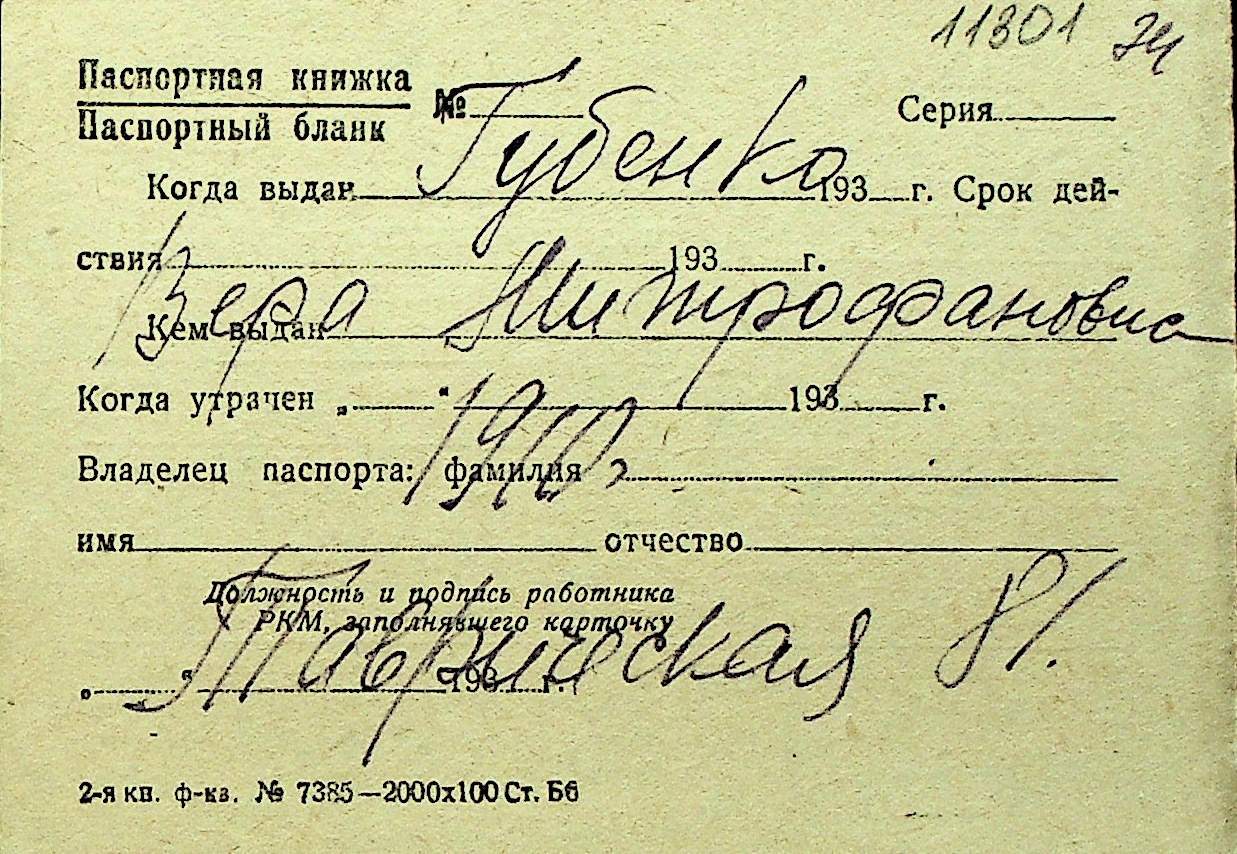 11801 24
Паспортная книжка
Паспортный бланк
№ Серия
Губенко
Когда выдан 193 г. Срок дей-
ствия 193 г.
Вера Митрофановна
Кем выдан
Когда утрачен „ “ 193 г.
1910
Владелец паспорта: фамилия
имя отчество
Должность и подпись работника
РКМ, заполнявшего карточку
Таврическая 81.
„ “ 193 г.
2-я кп. ф-кз. № 7385—2000х100 Ст. Бб